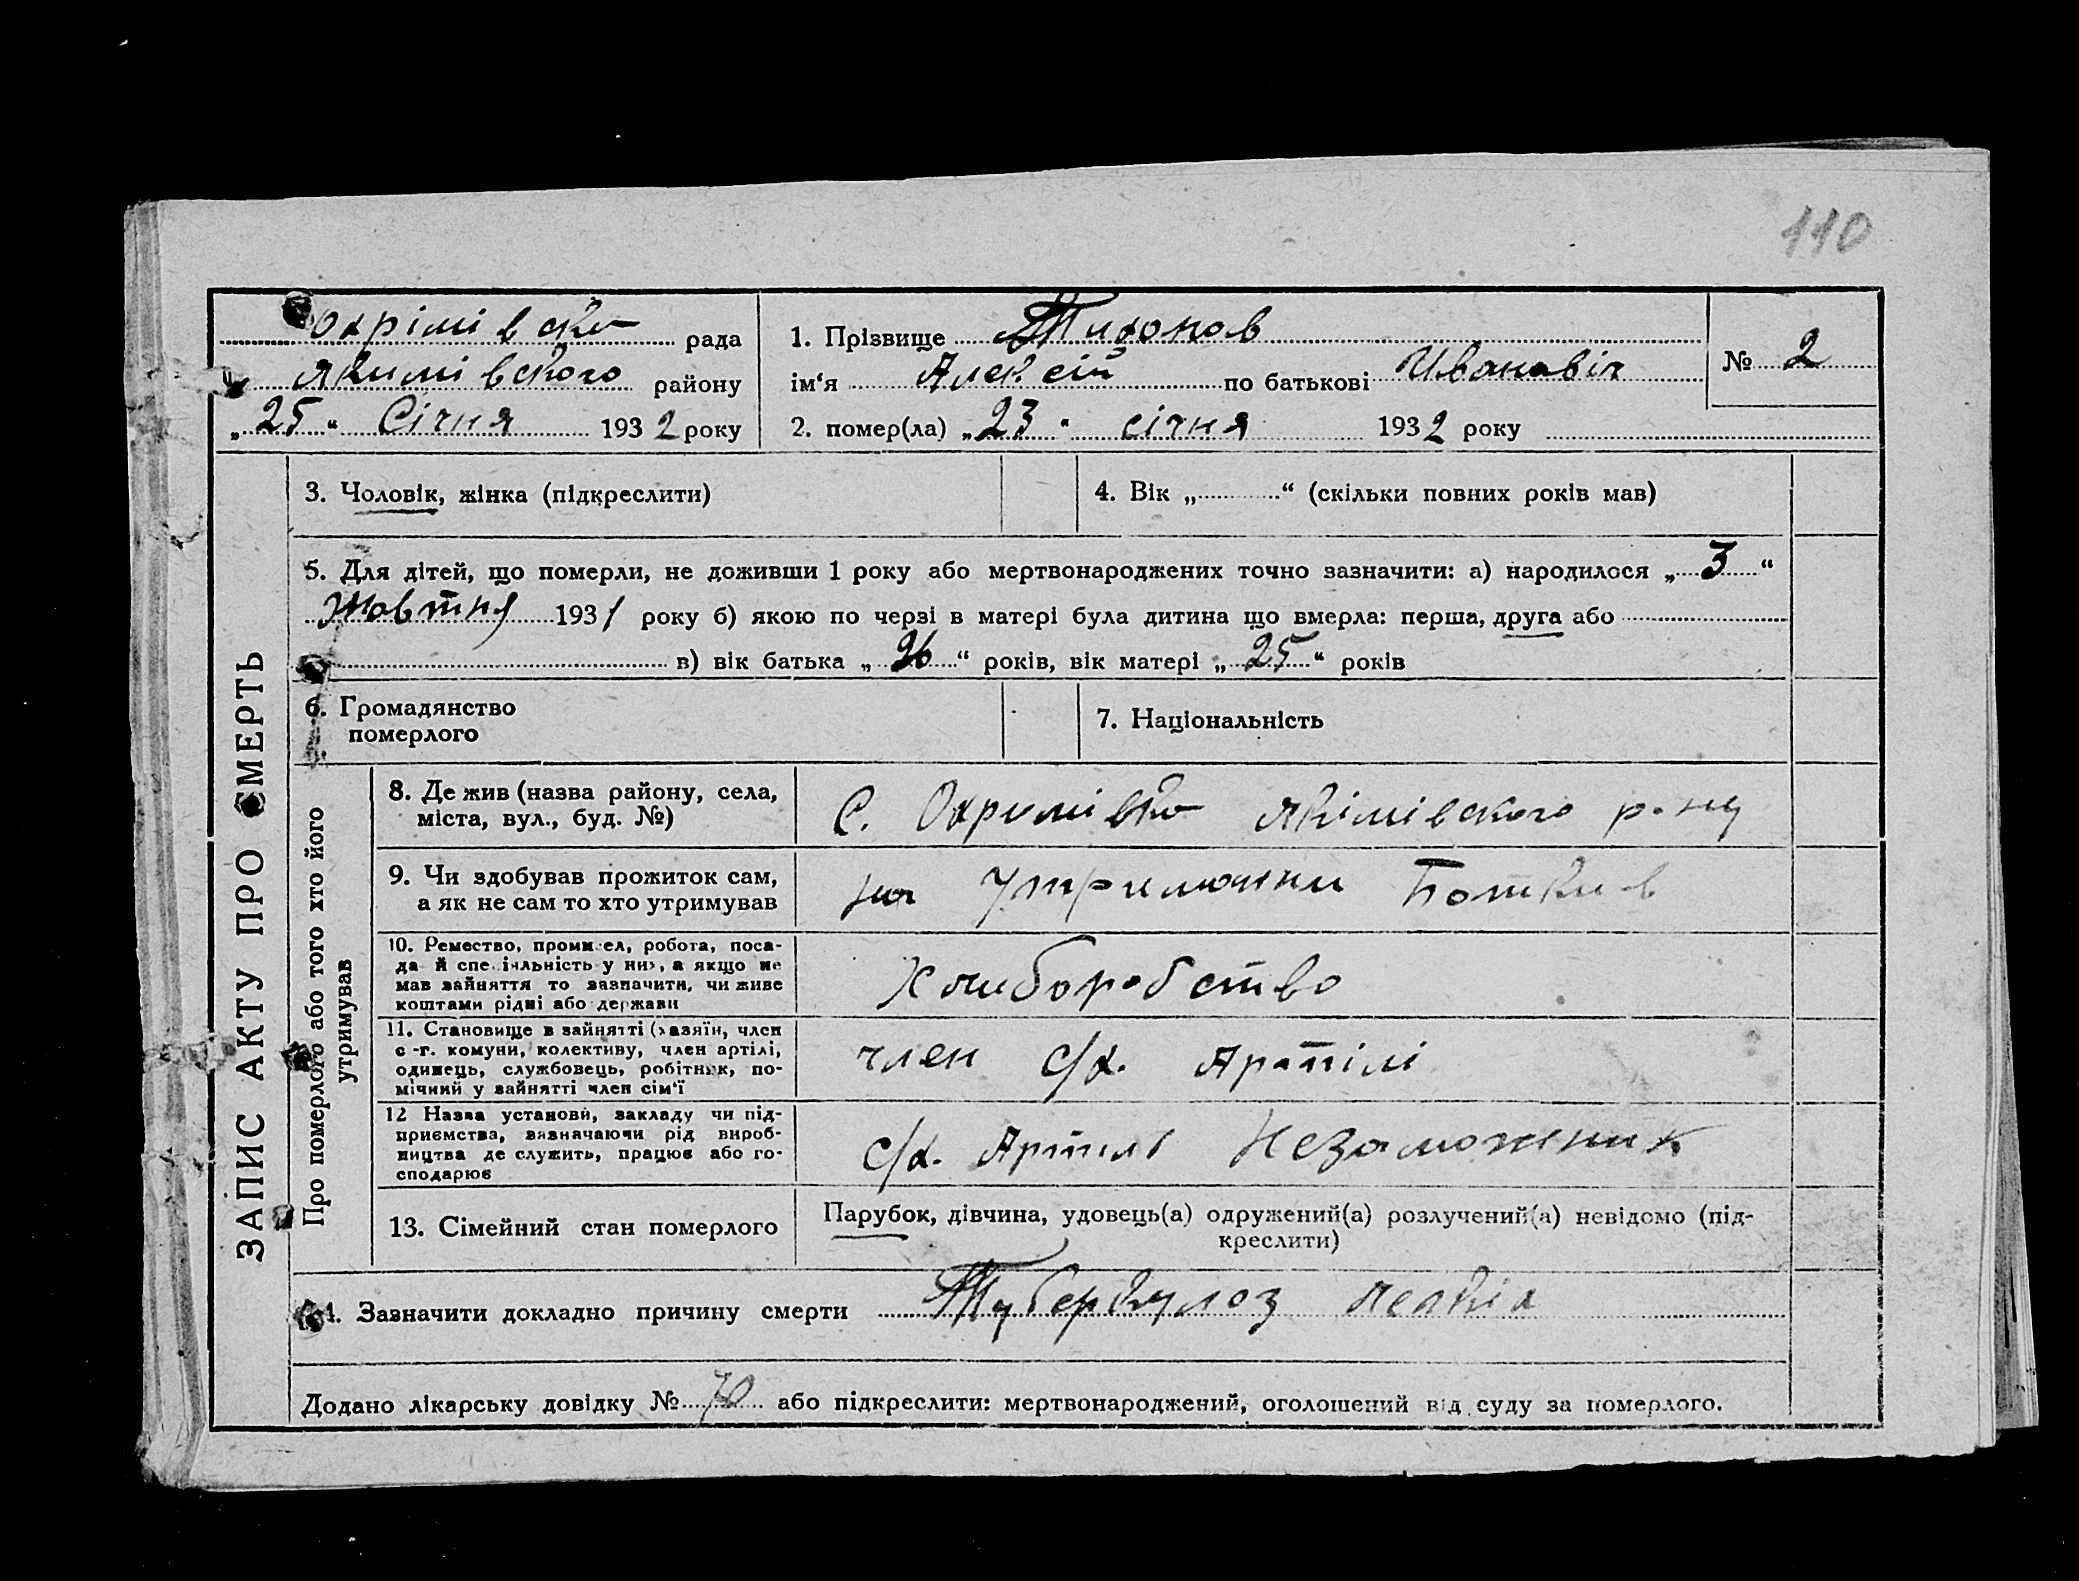 110
Охрімівська рада
Якимівського району
„25“ Січня 1932 року
1. Прізвище Тихонов
ім‘я Алексій по батькові Ивановіч
№ 2
2. помер(ла) „23“ січня 1932 року
ЗАПИС АКТУ ПРО СМЕРТЬ
3. Чоловік, жінка (підкреслити)
4. Вік „ “ (скільки повних років мав)
5. Для дітей, що померли, не доживши 1 року або мертвонароджених точно зазначити: а) народилося „3“
Жовтня 1931 року б) якою по черзі в матері була дитина що вмерла: перша, друга або
в) вік батька „26“ років, вік матері „25“ років
6. Громадянство
померлого
7. Національність
Про померлого або того хто його
утримував
8. Де жив (назва району, села,
міста, вул., буд. №)
С. Охримівка Якімівского р-ну
9. Чи здобував прожиток сам,
а як не сам то хто утримував
на утриманни Батьків
10. Ремество, промисел, робота, поса-
да й спеціяльність у них, а якщо не
мав зайняття то зазначити, чи живе
коштами рідні або держави
Хлиборобство
11. Становище в зайнятті (хазяїн, член
с.-г. комуни, колективу, член артілі,
одинець, службовець, робітник, по-
мічний у зайнятті член сім‘ї
член с/х. Артілі
12 Назва установи, закладу чи під-
приємства, зазначаючи рід вироб-
ництва де служить, працює або го-
сподарює
с/х. Артиль Незаможник
13. Сімейний стан померлого
Парубок, дівчина, удовець(а) одружений(а) розлучений(а) невідомо (під-
креслити)
14. Зазначити докладно причину смерти Туберкулоз легкіх
Додано лікарську довідку № 70 або підкреслити: мертвонароджений, оголошений від суду за померлого.